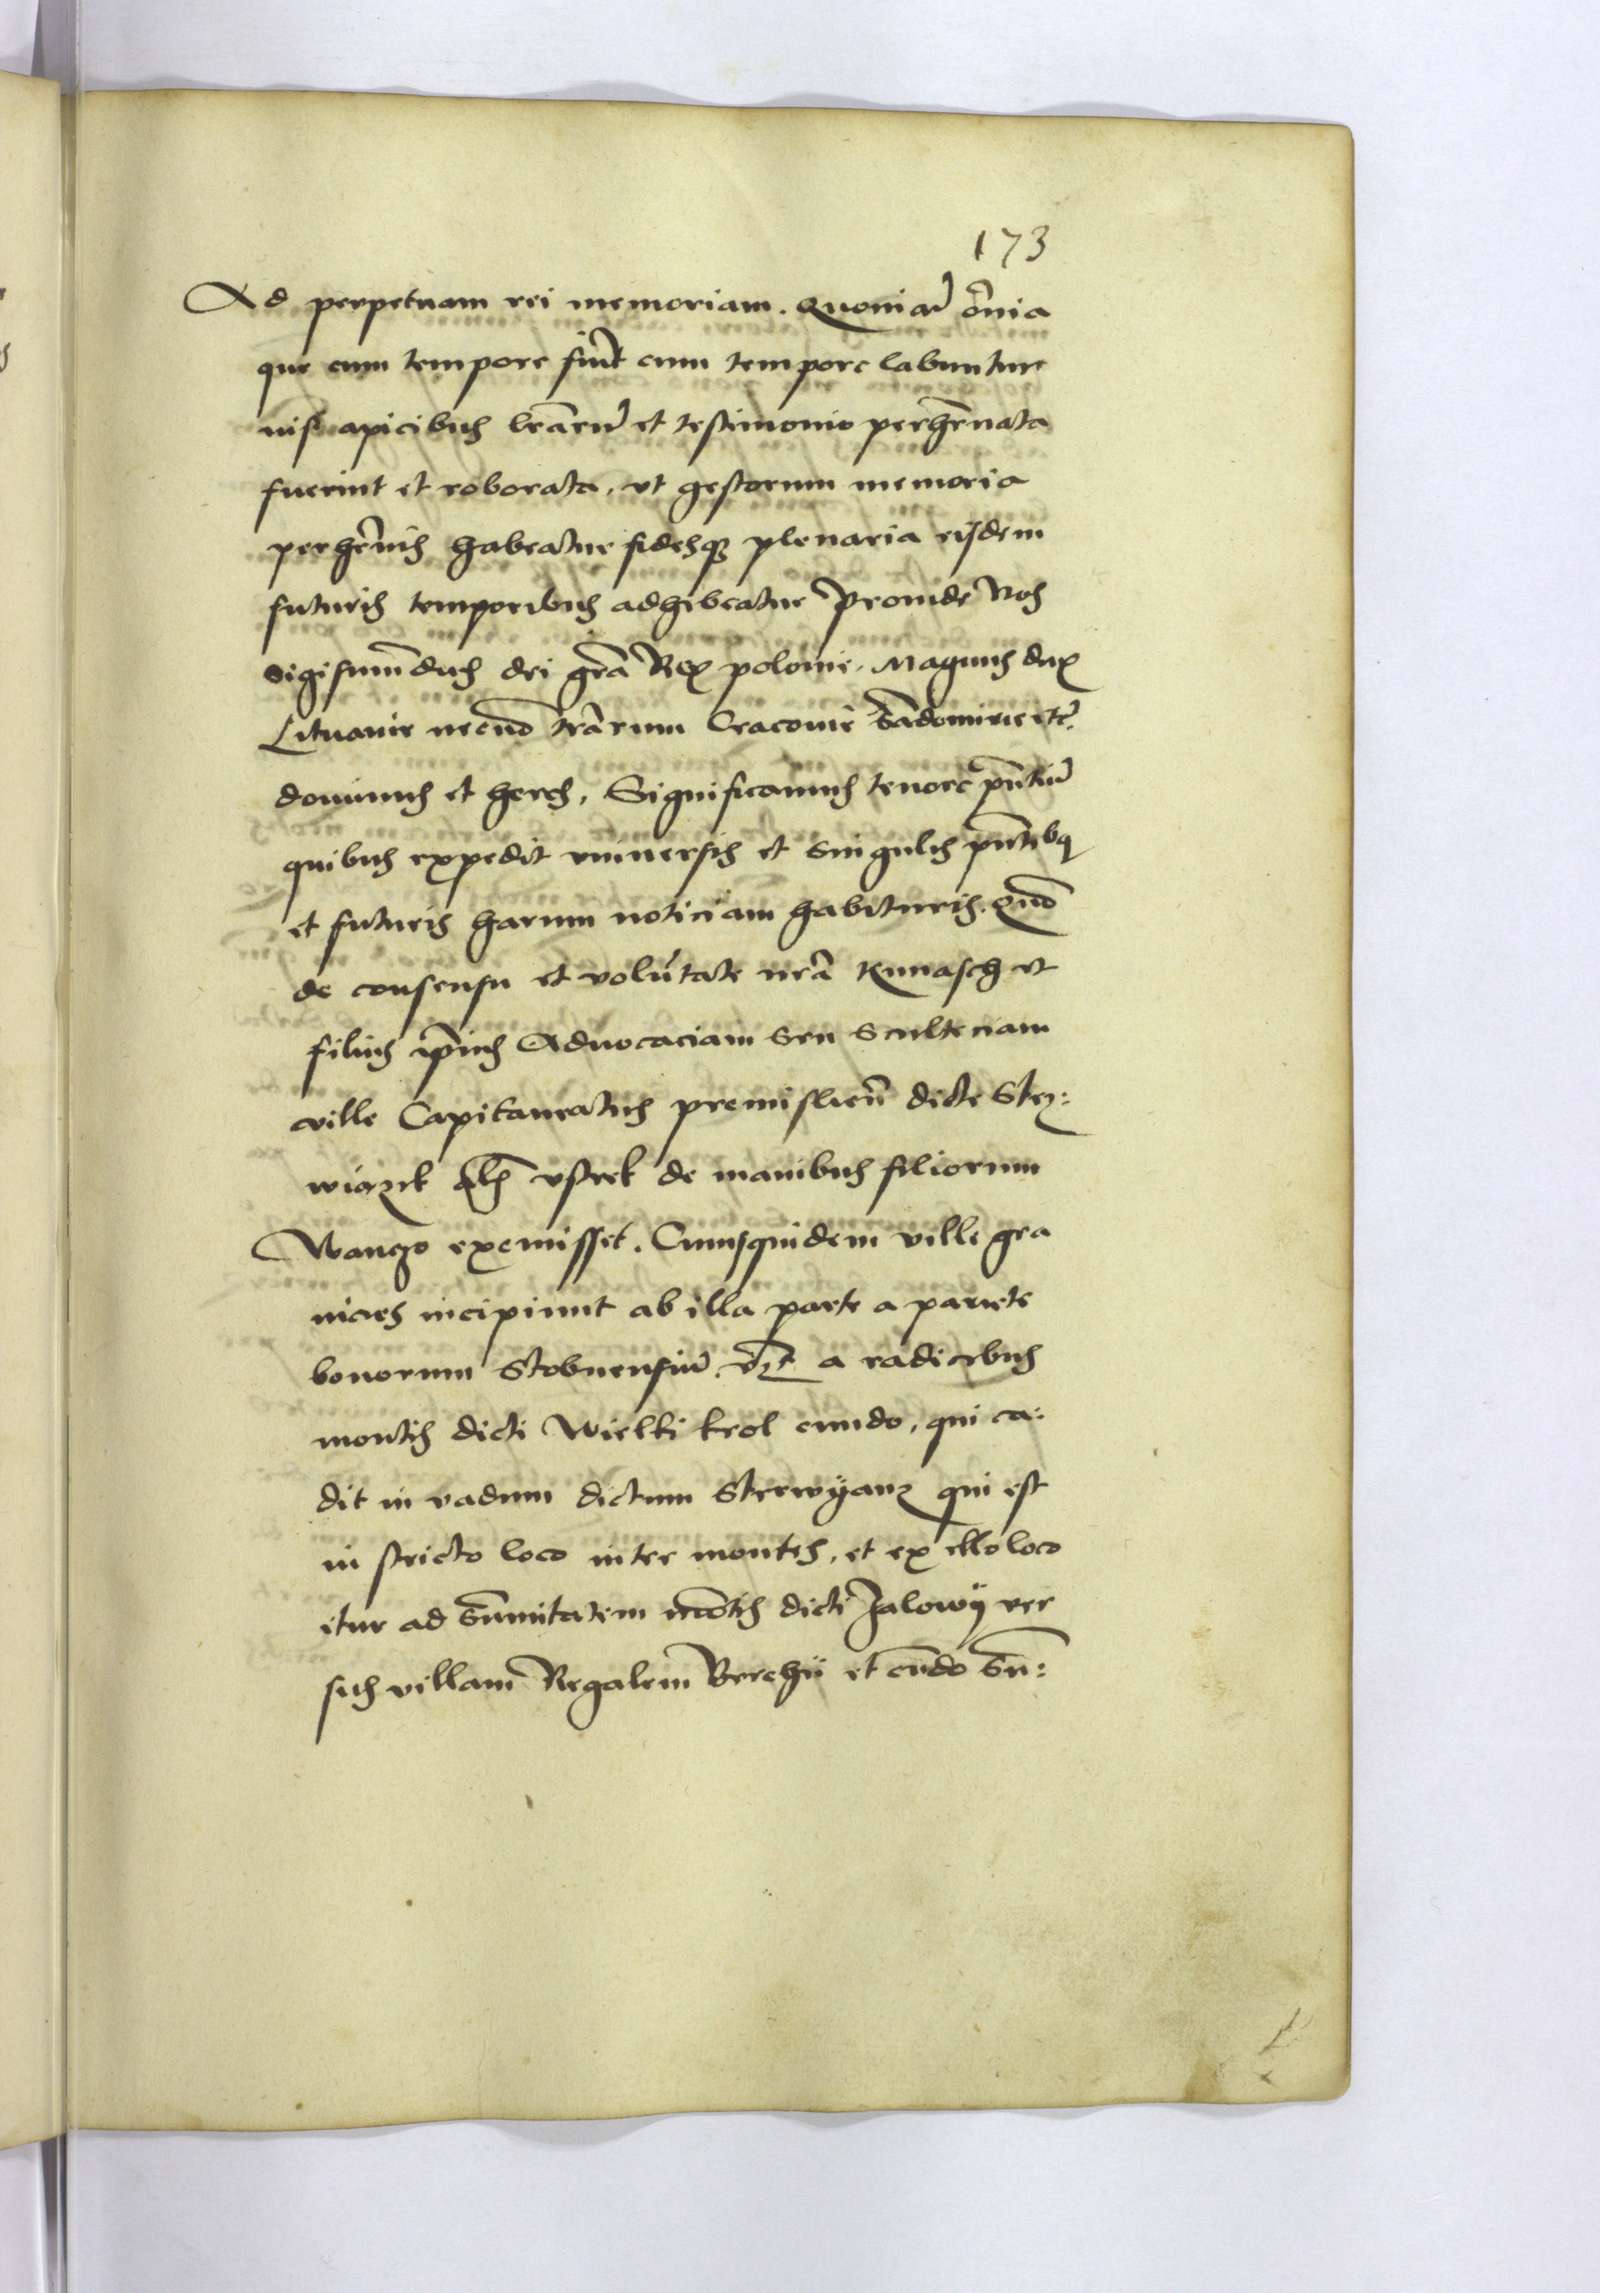 173
Ad perpetuam rei memoriam. Quoniā ōnia
que cum tempore fiūt cum tempore labuntur
nisi apicibus lr̄arū et testimonio perhēnata
fuerint et roborata, ut gestorum memoria
perhēnis habeatur fidesqꝫ plenaria eisdem
futuris temporibus adhibeatur Proinde Nos
Sigismūdus dei gr̄a Rex polonie. Magnus dux
Lituanie necnō tr̄arum Cracouie Sādomirie etc̄.
dominus et heres, Significamus tenore pn̄tiū
quibus expedit vniuersis et singulis pn̄tibꝫ
et futuris harum noticiam habituris. Quō
de consensu et volūtate nr̄a Kunasch et
filius ip̄ius Aduocaciam seu sculteciam
ville Capitaneatus premislien̄ dicte Stẏ:
wiązek al̄s vstrek de manibus filiorum
Wanczo exemisset. Cuiusquidem ville gra
nicies incipiunt ab illa parte a pariete
bonorum Stobnensiū. vꝫt a radicibus
montis dicti Wielki krol eundo, qui ca:
dit in vadum dictum Strwyanz qui est
in stricto loco inter montes, et ex illo loco
itur ad Sūmitatem mōtis dicti Jalowÿ ver
sus villam Regalem Berehÿ et eūdo Sū: